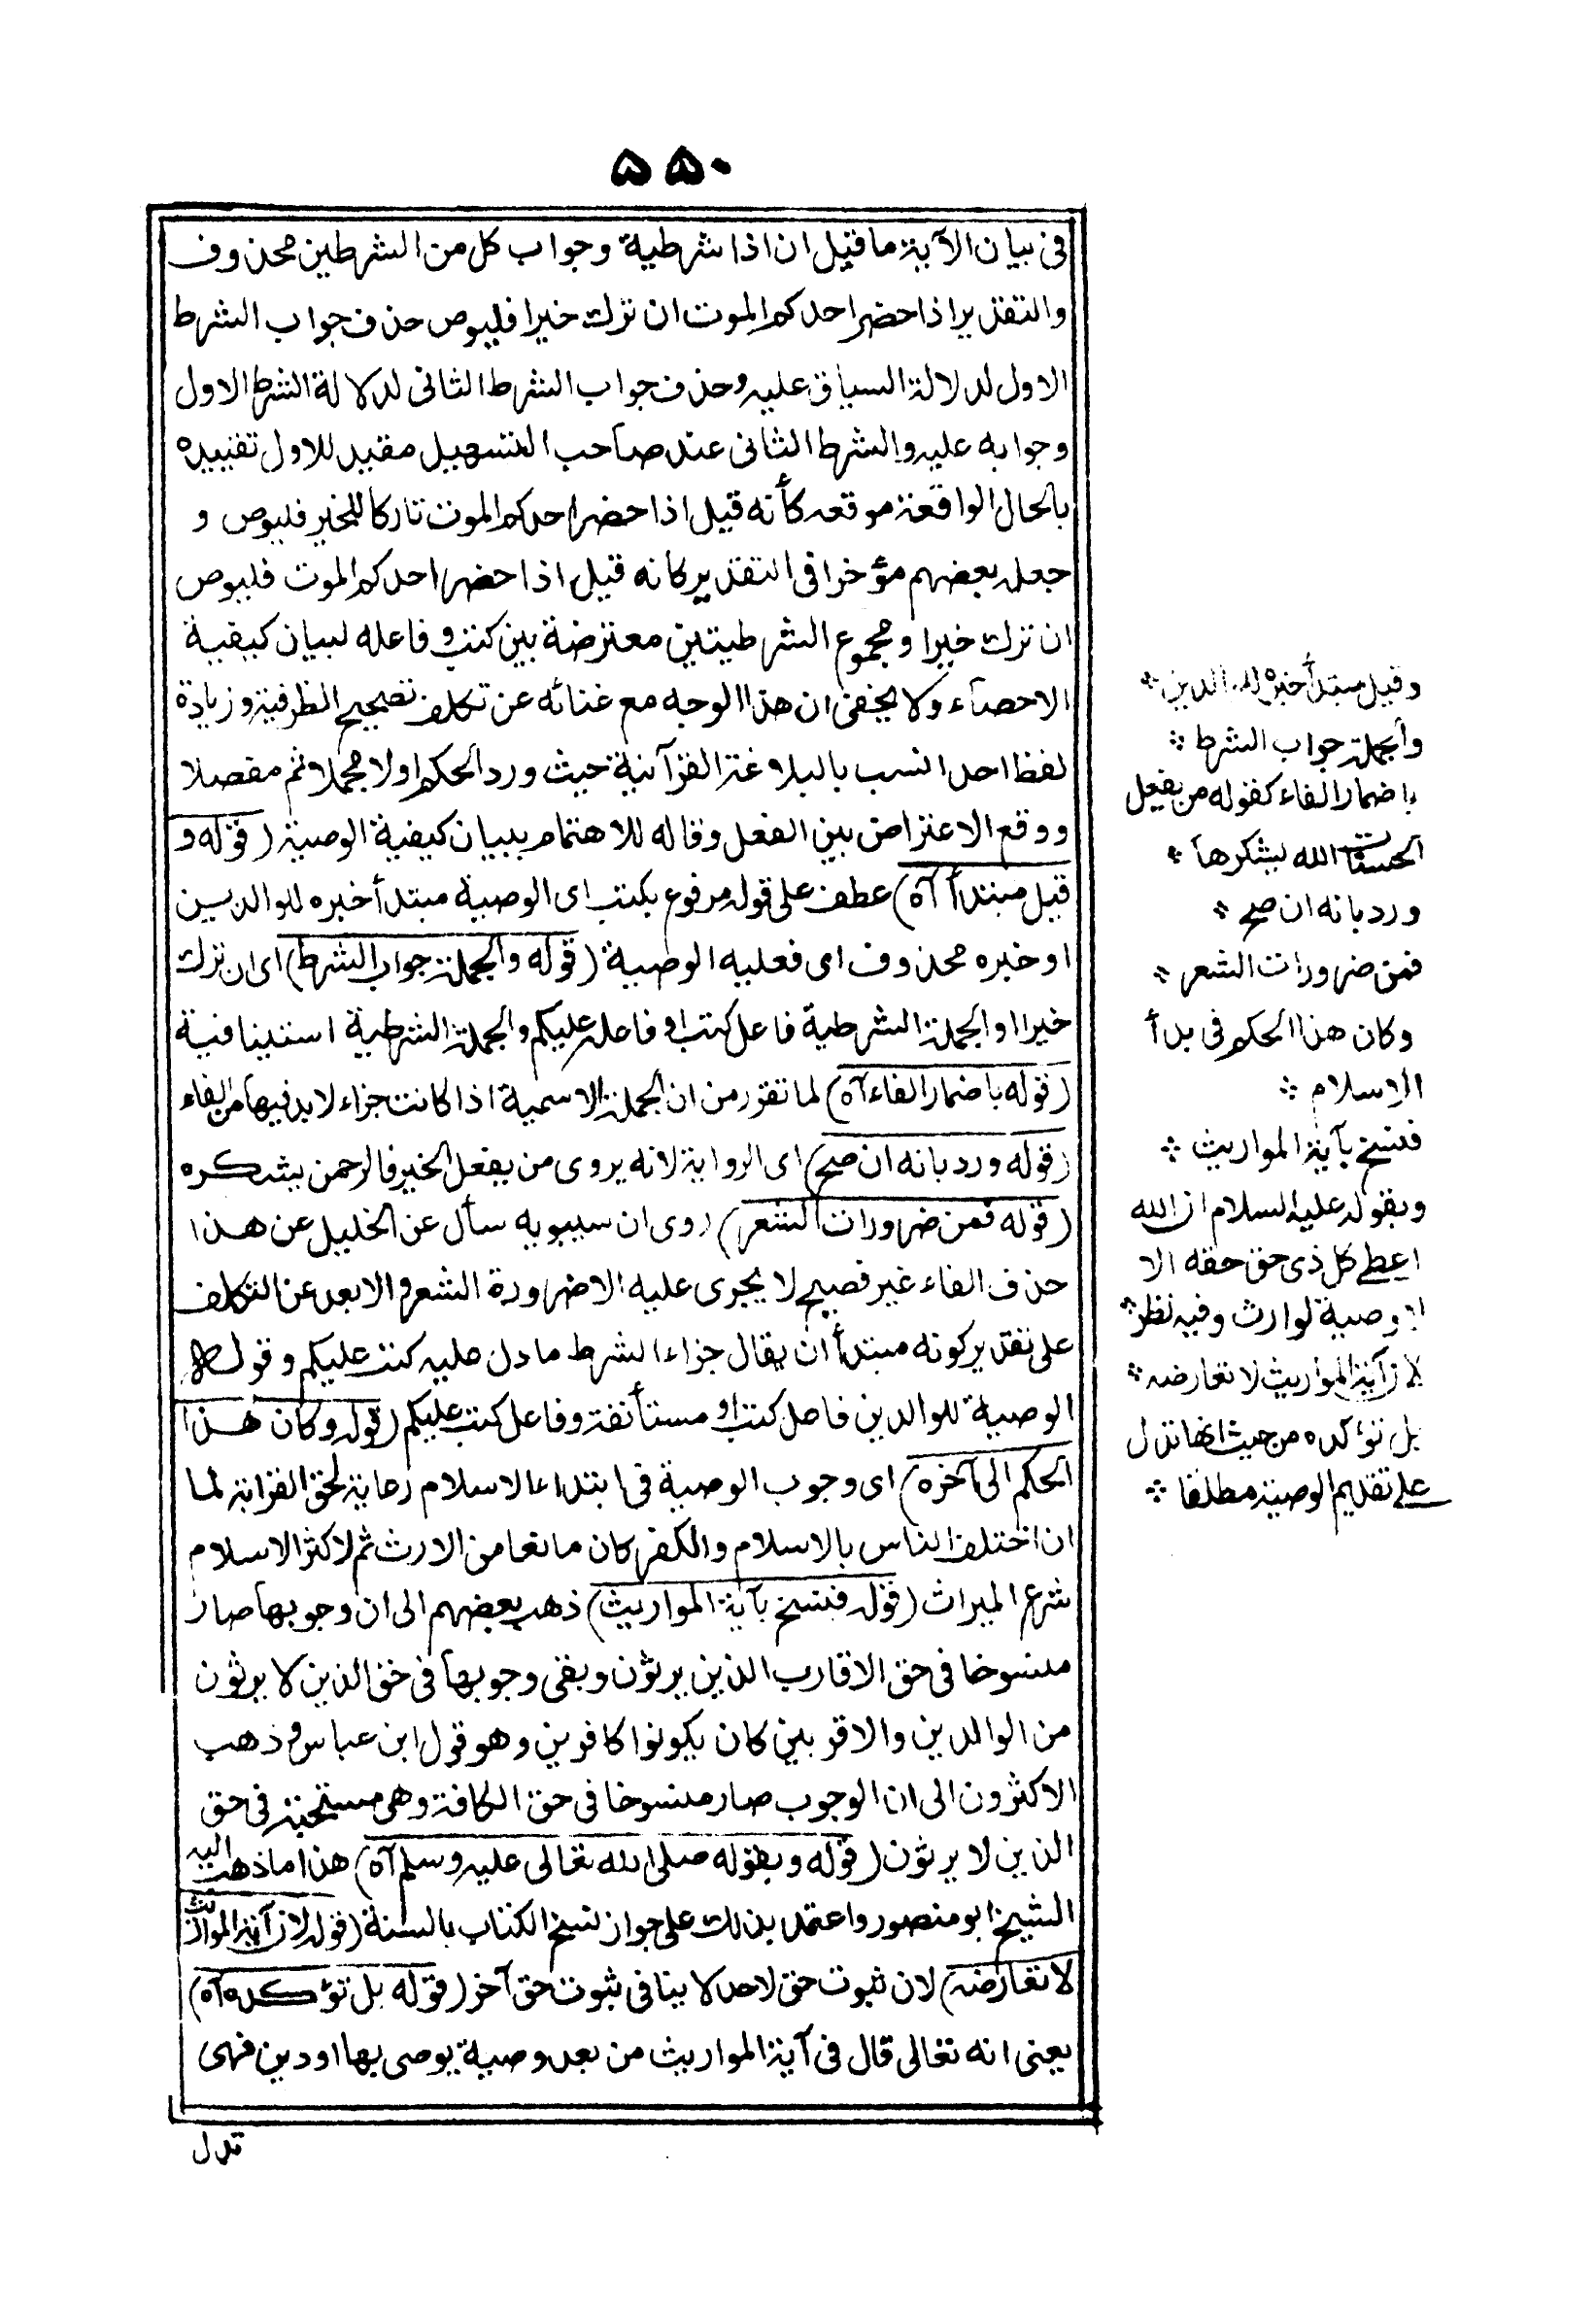 ٥٥٠
فى بيان الآية ما قيل ان اذا شرطية وجواب كل من الشرطين محذوف
والتقدير اذا حضر احدكم الموت ان ترك خيرا فليوص حذف جواب الشرط
الاول لدلالة السياق عليه وحذف جواب الشرط الثانى لدلالة الشرط الاول
وجوابه عليه والشرط الثانى عند صاحب التسهيل مقيد للاول تقييده
بالحال الواقعة موقعه كأنه قيل اذا حضر احدكم الموت تاركا للخير فليوص و
جعله بعضهم مؤخرا فى التقدير كانه قيل اذا حضر احدكم الموت فليوص
ان ترك خيرا ومجموع الشرطيتين معترضة بين كتب وفاعله لبيان كيفية
الاحصاء ولا يخفى ان هذا الوجه مع غنائه عن تكلف تصحيح الظرفية وزيادة
لفظ احد انسب بالبلاغة القرآنية حيث ورد الحكم اولا مجملا ثم مفصلا
ووقع الاعتراض بين الفعل وفاله للاهتمام ببيان كيفية الوصية (قوله و
قيل مبتدأ آه) عطف على قوله مرفوع بكتب اى الوصية مبتدأ خبره للوالدين
او خبره محذوف اى فعليه الوصية (قوله والجملة جواب الشرط) اى ان ترك
خيرا والجملة الشرطية فاعل كتب او فاعله عليكم والجملة الشرطية استينافية
(قوله باضمار الفاء آه) لما تقرر من ان الجملة الاسمية اذا كانت جزاء لابد فيها من الفاء
(قوله ورد بانه ان صح) اى الرواية لانه يروى من يفعل الخير فالرحمن يشكره
(قوله فمن ضرورات الشعر) روى ان سيبويه سأل عن الخليل عن هذا
حذف الفاء غير فصيح لا يجرى عليه الا ضرورة الشعر والابعد عن التكلف
على تقدير كونه مبتدأ ان يقال جزاء الشرط ما دل عليه كتب عليكم وقوله
الوصية للوالدين فاعل كتب او مستأنفة وفاعل كتب عليكم (قوله وكان هذا
الحكم الى آخره) اى وجوب الوصية فى ابتداء الاسلام رعاية لحق القرابة لما
ان اختلف الناس بالاسلام والكفر كان مانعا من الارث ثم لا كثر الاسلام
شرع الميراث (قوله فنسخ بآية المواريث) ذهب بعضهم الى ان وجوبها صار
منسوخا فى حق الاقارب الذين يرثون وبقى وجوبها فى حق الذين لا يرثون
من الوالدين والاقربين كان يكونوا كافرين وهو قول ابن عباس وذهب
الاكثرون الى ان الوجوب صار منسوخا فى حق الكافة وهى مستحبة فى حق
الذين لا يرثون (قوله وبقوله صلى الله تعالى عليه وسلم آه) هذا ما ذهب اليه
الشيخ ابو منصور واعتمد بذلك على جواز نسخ الكتاب بالسنة (قوله لان آية المواريث
لا تعارضه) لان ثبوت حق لاحد لا ينافى ثبوت حق آخر (قوله بل تؤكده آه)
يعنى انه تعالى قال فى آية المواريث من بعد وصية يوصى بها او دين فهى
وقيل مبتدأ خبره للوالدين
والجملة جواب الشرط
باضمار الفاء كقوله من يفعل
الحسنات الله يشكرها
ورد بانه ان صح
فمن ضرورات الشعر
وكان هذا الحكم فى بدأ
الاسلام
فنسخ بآية المواريث
وبقوله عليه السلام ان الله
اعطى كل ذى حق حقه الا
لا وصية لوارث وفيه نظر
لان آية المواريث لا تعارضه
بل تؤكده من حيث انها تدل
على تقديم الوصية مطلقا